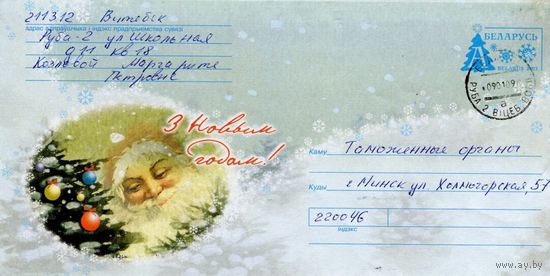 211312 Витебск
Адрас адпраўшчыка і індэкс прадпрыемства сувязі
Руба-2 ул Школьная
д 11 кв 18
Козловой Маргарите
Петровне
БЕЛАРУСЬ
BELARUS
090109
РУБА 2 ВІЦЕБ
а
З Новым
годам!
Каму Таможенные органы
Куды г. Минск ул. Холмогорская, 57
220046
індэкс
www.ay.by